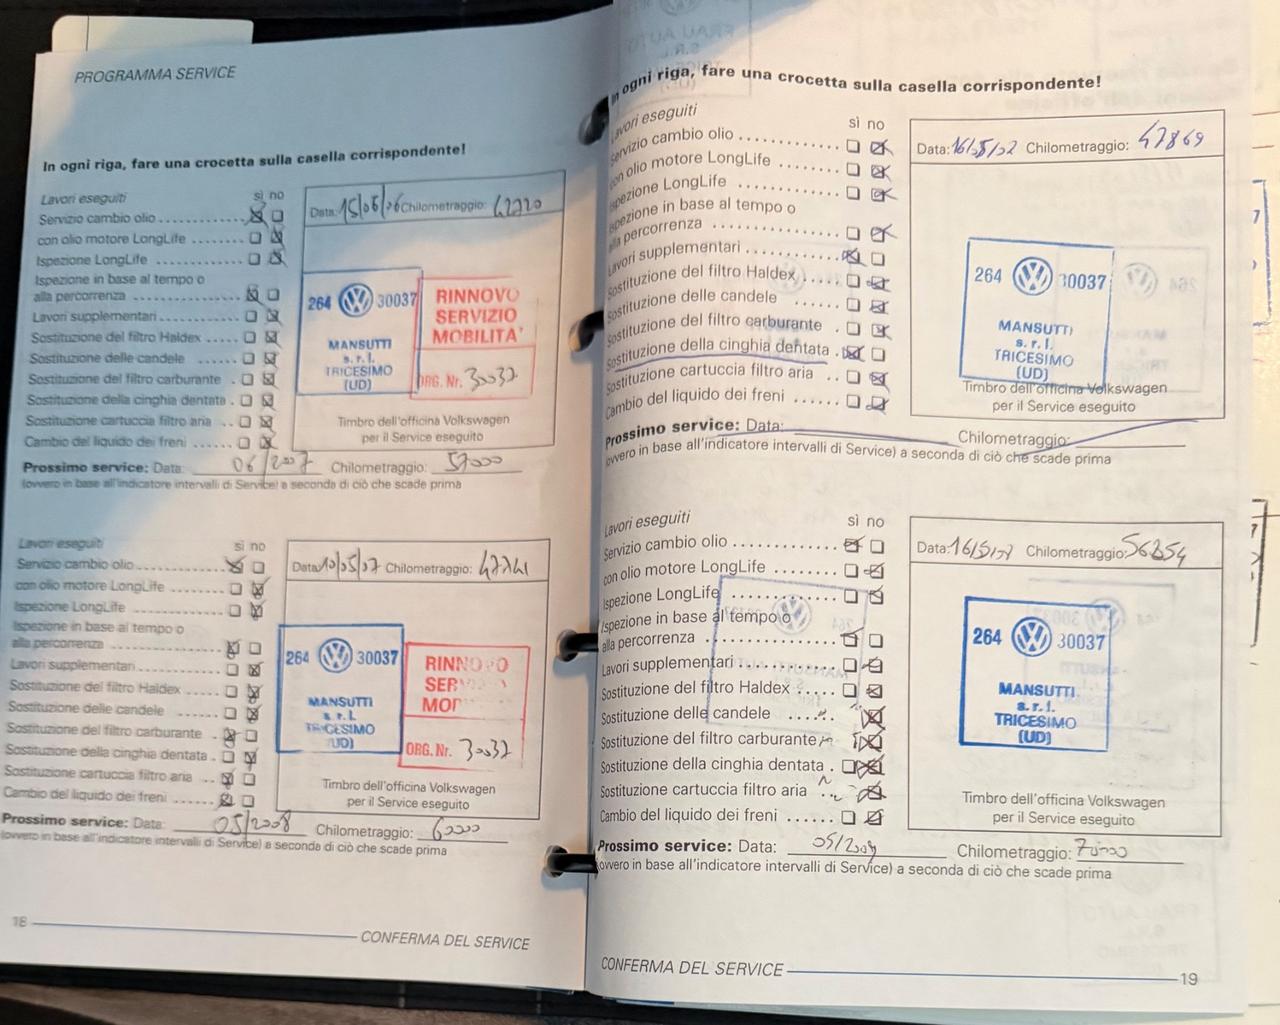 PROGRAMMA SERVICE
In ogni riga, fare una crocetta sulla casella corrispondente!
Lavori eseguiti
sì no
Servizio cambio olio
con olio motore LongLife
Ispezione LongLife
Ispezione in base al tempo o
alla percorrenza
Lavori supplementari
Sostituzione del filtro Haldex
Sostituzione delle candele
Sostituzione del filtro carburante
Sostituzione della cinghia dentata
Sostituzione cartuccia filtro aria
Cambio del liquido dei freni
Data: 15/06/06 Chilometraggio: 42720
264 30037
MANSUTTI
s. r. l.
TRICESIMO
(UD)
RINNOVO
SERVIZIO
MOBILITA'
ORG. Nr. 30037
Timbro dell'officina Volkswagen
per il Service eseguito
Prossimo service: Data: 06/2007 Chilometraggio: 57000
(ovvero in base all'indicatore intervalli di Service) a seconda di ciò che scade prima
Lavori eseguiti
sì no
Servizio cambio olio
con olio motore LongLife
Ispezione LongLife
Ispezione in base al tempo o
alla percorrenza
Lavori supplementari
Sostituzione del filtro Haldex
Sostituzione delle candele
Sostituzione del filtro carburante
Sostituzione della cinghia dentata
Sostituzione cartuccia filtro aria
Cambio del liquido dei freni
Data: 10/05/07 Chilometraggio: 47741
264 30037
MANSUTTI
s. r. l.
TRICESIMO
(UD)
RINNOVO
ORG. Nr. 30037
Timbro dell'officina Volkswagen
per il Service eseguito
Prossimo service: Data: 05/2008 Chilometraggio: 60000
(ovvero in base all'indicatore intervalli di Service) a seconda di ciò che scade prima
18
CONFERMA DEL SERVICE
In ogni riga, fare una crocetta sulla casella corrispondente!
Lavori eseguiti
sì no
Servizio cambio olio
con olio motore LongLife
Ispezione LongLife
Ispezione in base al tempo o
alla percorrenza
Lavori supplementari
Sostituzione del filtro Haldex
Sostituzione delle candele
Sostituzione del filtro carburante
Sostituzione della cinghia dentata
Sostituzione cartuccia filtro aria
Cambio del liquido dei freni
Data: Chilometraggio: 47869
264 30037
MANSUTTI
s. r. l.
TRICESIMO
(UD)
Timbro dell'officina Volkswagen
per il Service eseguito
Prossimo service: Data: Chilometraggio:
(ovvero in base all'indicatore intervalli di Service) a seconda di ciò che scade prima
Lavori eseguiti
sì no
Servizio cambio olio
con olio motore LongLife
Ispezione LongLife
Ispezione in base al tempo o
alla percorrenza
Lavori supplementari
Sostituzione del filtro Haldex
Sostituzione delle candele
Sostituzione del filtro carburante
Sostituzione della cinghia dentata
Sostituzione cartuccia filtro aria
Cambio del liquido dei freni
Data: Chilometraggio: 56854
264 30037
MANSUTTI
s. r. l.
TRICESIMO
(UD)
Timbro dell'officina Volkswagen
per il Service eseguito
Prossimo service: Data: 05/2009 Chilometraggio: 70000
(ovvero in base all'indicatore intervalli di Service) a seconda di ciò che scade prima
CONFERMA DEL SERVICE
19